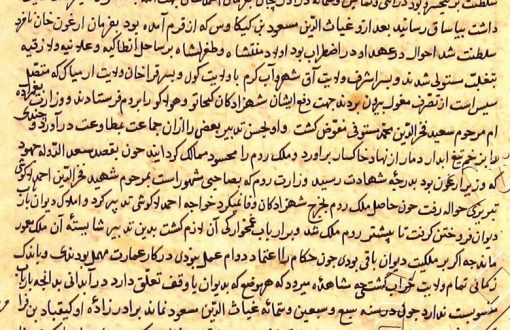 داشت بیاساق رسانید بعد ازو غیاث الدین مسعود بن کیکاوس که از قرم آمده بود بفرمان ارغون خان نامزد
سلطنت شد احوال در عهد او در اضطراب بود اولاد منتشا و طغرلشاه بر ساحل انطاکیه و علائیه ولارقیه
تغلب مستولی شدند و پسر اشرف ولایت آق شهر و آب کرم با ولایت کون و پسر قراخان ولایت ارمناک که متصل
سیس است از تصرف مغول بیرون بودند جهت دفع ایشان شهزادگان کیخاتو و هولاکو را بروم فرستادند و وزارت بعهده
ام مرحوم سعید فخر الدین محمد مستوفی مفوض کشت و او بحسن تدبیر بعضی را از ان جماعت بمطاوعت در آورد و چندی
را بزخم تیغ ابدار دمار از نهاد خاکسار براورد و ملک روم را محسود ممالک کردانید جون بقصد سعد الدوله جهود
که وزیر ارغون بود بدرجه شهادت رسید وزارت روم که بصاحبی مشهورست بمرحوم شهید فخر الدین احمد لاکوشی
تبریزی حواله رفت جون حاصل ملک روم بخرج شهزادکان وفا نمیکرد خواجه احمد لاکوشی تدبیر کرد و املاک دیوان بارباب
دیوان فروختن کرفت تا بیشتر روم ملک شد و بر ارباب غمخوارکی آن لازم کشت بدین تدبیر شایسته آن ملک معمور
ماند جه اکر بر ملکیت دیوان باقی بودی جون حکام را اعتماد دوام عمل نبودی در کار عمارت مهمل بودندی و باندک
زمانی تمام ولایت خراب کشتی جه مشاهده میرود که هر موضع که بدیوان یا وقف تعلق دارد در آبدانی بدانجه بارباب
منسوبست ندارد جون در سنه سبع و تسعین و ستمائه غیاث الدین مسعود نماند برادر زاده او کیقباد بن فرا